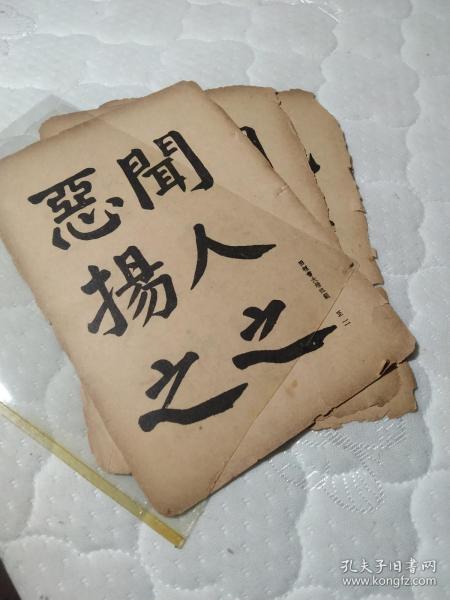 聞人之
惡揚之
孔夫子旧书网
www.kongfz.com